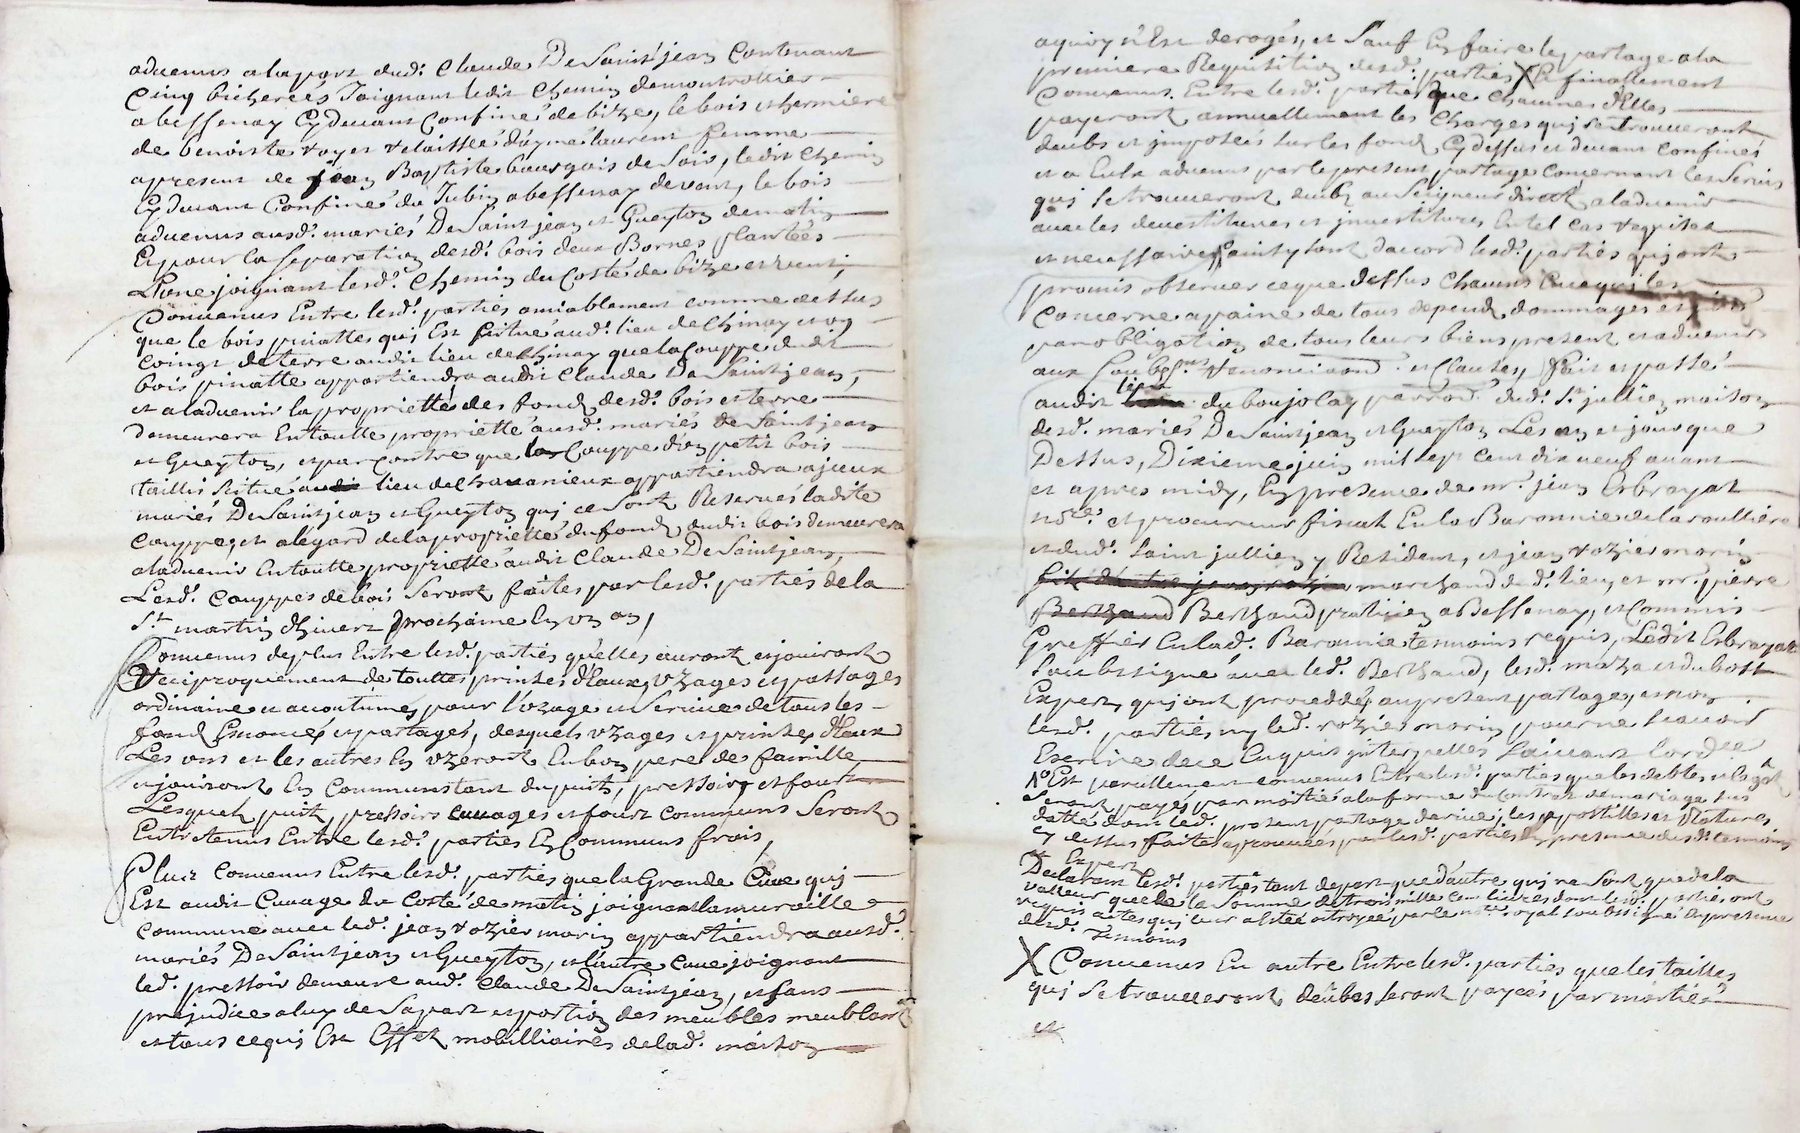 advenus a la part dud. Claude De Saint jean Contenant
Cinq bicherées Joignant ledit Chemin de montrottier
a bessenay Cydevant Confiné de bize, le bois et hermiere
de benoiste voyet delaissée d'aymé laurent femme
apresent de jean Baptiste bourgois de Sois, ledit Chemin
Cydevant Confiné du Jubin a bessenay devent, le bois
advenus ausd. mariés De Saint jean et Gueyton de matin
Et pour la Separation desd. bois deux Bornes plantées
L'une joignant lesd. Chemin du Costé de bize et vent,
Convenus Entre lesd. parties amiablement comme dessus
que le bois pinattes qui Est Scitué aud. lieu de Chinay et un
Coingt de terre audit lieu de Chinay que la Couppe dudit
bois pinatte appartiendra audit Claude De Saint jean,
et a ladvenir la proprietté des fond desd. bois et terre
demeurera En toutte proprietté ausd. mariés de Saint jean
et Gueyton, et par Contre que la Couppe d'un petit bois
taillis scitué au lieu de Chavanieux appartiendra a jceux
mariés De Saint jean et Gueyton qui ce Sont Reservés ladite
Couppe, et a légard de la proprietté du fond dudit bois demeurera
a ladvenir En toutte proprietté audit Claude De Saint jean,
Lesd. Couppes de bois Seront faites par lesd. parties de la
St martin d'hiverz prochaine En un an,
Convenus de plus Entre lesd. parties qu'elles auront et jouiront
Reciproquement de touttes prinses d'Eaux, uzages et passages
ordinaire et accoutumés pour l'uzage et Service de tous les
fond Enoncés et partagés, desquels uzages et prinses d'Eaux
Les uns et les autres En uzeront En bon pere de famille
et jouiront En Commun tant du puits, pressoir et fourt
Lesquels puit, pressoirs cuvages et fourt communs Seront
Entretenus Entre lesd. parties En Communs frais,
Plus Convenus Entre lesd. parties que la Grande Cuve qui
Est audit Cuvage du Costé de matin joignant la muraille
Commune avec led. jean vozier morin appartiendra ausd.
mariés De Saint jean et Gueyton, et l'autre Cuve joignant
led. pressoir demeure aud. Claude De Saint jean, et sans
prejudice a luy de Sa part et portion des meubles meublant
et tous ce qui Est Effet mobilliaires de lad. maison
a quoy n'Est derogés, et Sauf En faire le partage a la
premiere Requisition desd. parties X Et finallement
Convenus Entre lesd. parties que Chacunes d'Elles
payeront annuellement les Charges qui se trouveront
deubs et jmposées Sur les fond Cydessus et devant Confinés
et a Eulx advenus par le present partage Concernant les Servis
qui se trouveront deubs au Seigneur direct a ladvenir
avec les devestitures et jnvestitures En tel cas requises
et necessaires Cainsy sont daccord lesd. parties qui ont
promis observer ce que dessus Chacuns En ce qui les
Concerne a paine de tous depend dommages et
par obligation de tous leurs biens present et advenir
aux renonciaons et Clauses, Fait et passé
audit lieu du boujolay parroë dud. St jullien maison
desd. mariés De Saint jean et Gueyton Les an et jour que
Dessus, Dixieme juin mil sept cent dix neuf avant
et apres midy, En presence de mr. jean Esbrayat
nore. et procureur fiscal En la Baronnie de la roulliere
et dud. Saint jullien y Resident, et jean vozier morin
marchand dud. lieu, et mr. pierre
Berthaud Berthaud praticien a Bessenay, et Commis
Greffier En lad. Baronnie temoins requis, Ledit Esbrayat
Soubsigné avec led. Berthaud, lesd. moza et dubost
Expert qui ont procedé au present partage, et non
lesd. parties ny led. vozier morin pour ne Scavoir
Escrire de ce Enquis jnterpellés Suivant l'ordce
Est pareillement convenus Entre lesd. parties que les debtes et les
Seront payés par moitié a la forme du Contrat de mariage Sus
datté dont led. present partage derive, les appostilles et Ratures
cy dessus faites aprouvées par lesd. parties En presence desd. temoins
et Expert
Declarant lesd. parties tant de part que d'autre qui ne Sont que de la
valleur que de la Somme de trois mille cent livres dont lesd. parties ont
requis actes qui leur a étté octroyée par le nore royal soubsigné En presence
desd. Temoins
X Convenus En outre Entre lesd. parties que les tailles
qui Se trouveront deubes Seront payées par moitiés
et